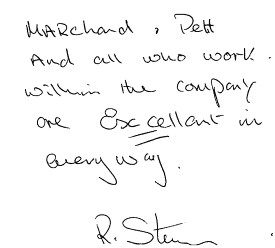 MARchand, Pett
And all who work.
within the company
are Excellant in
every way.
R.